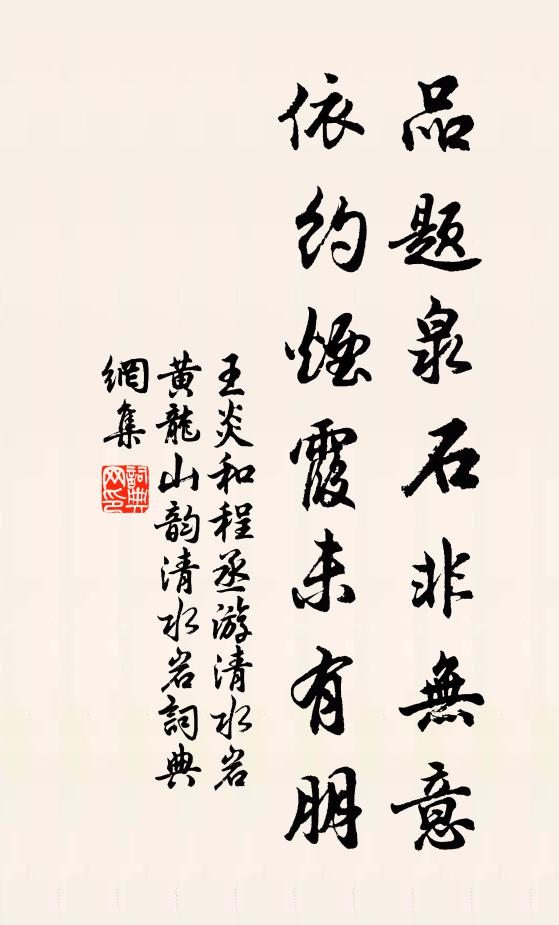 品题泉石非無意
依约煙霞未有朋
王炎和程丞游清水岩
黄龍山韵清水岩詞典
網集
詞典網印